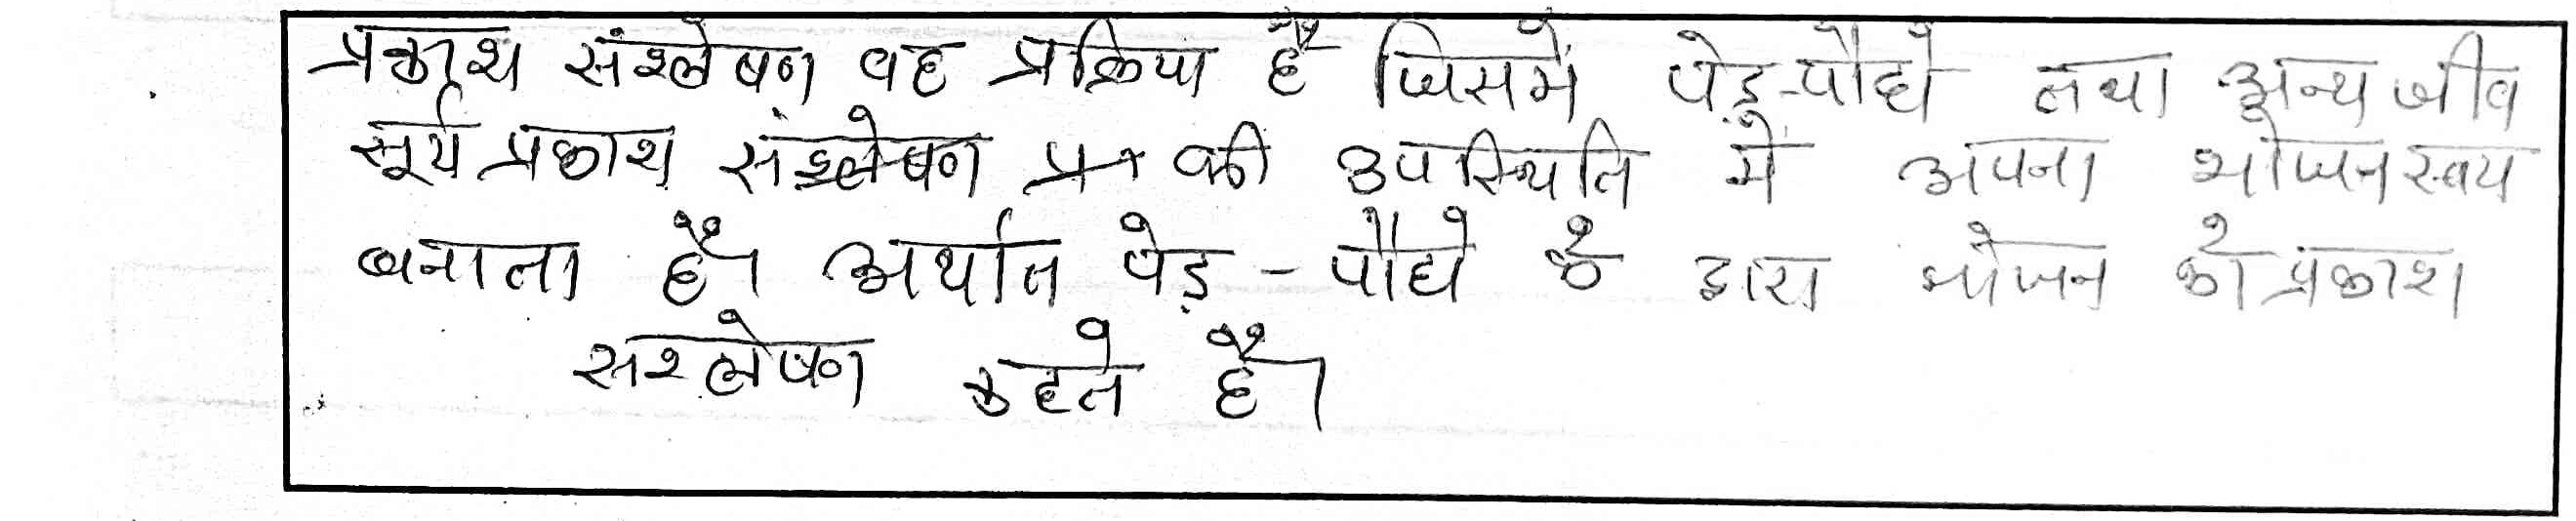 प्रकाश संश्लेषण वह प्रक्रिया है जिसमें पेड़-पौधे तथा अन्य जीव
सूर्य प्रकाश संश्लेषण प्र की उपस्थिति में अपना भोजन स्वय
बनाता है। अर्थात पेड़ - पौधे के द्वारा भोजन को प्रकाश
सश्लेषण कहते है।